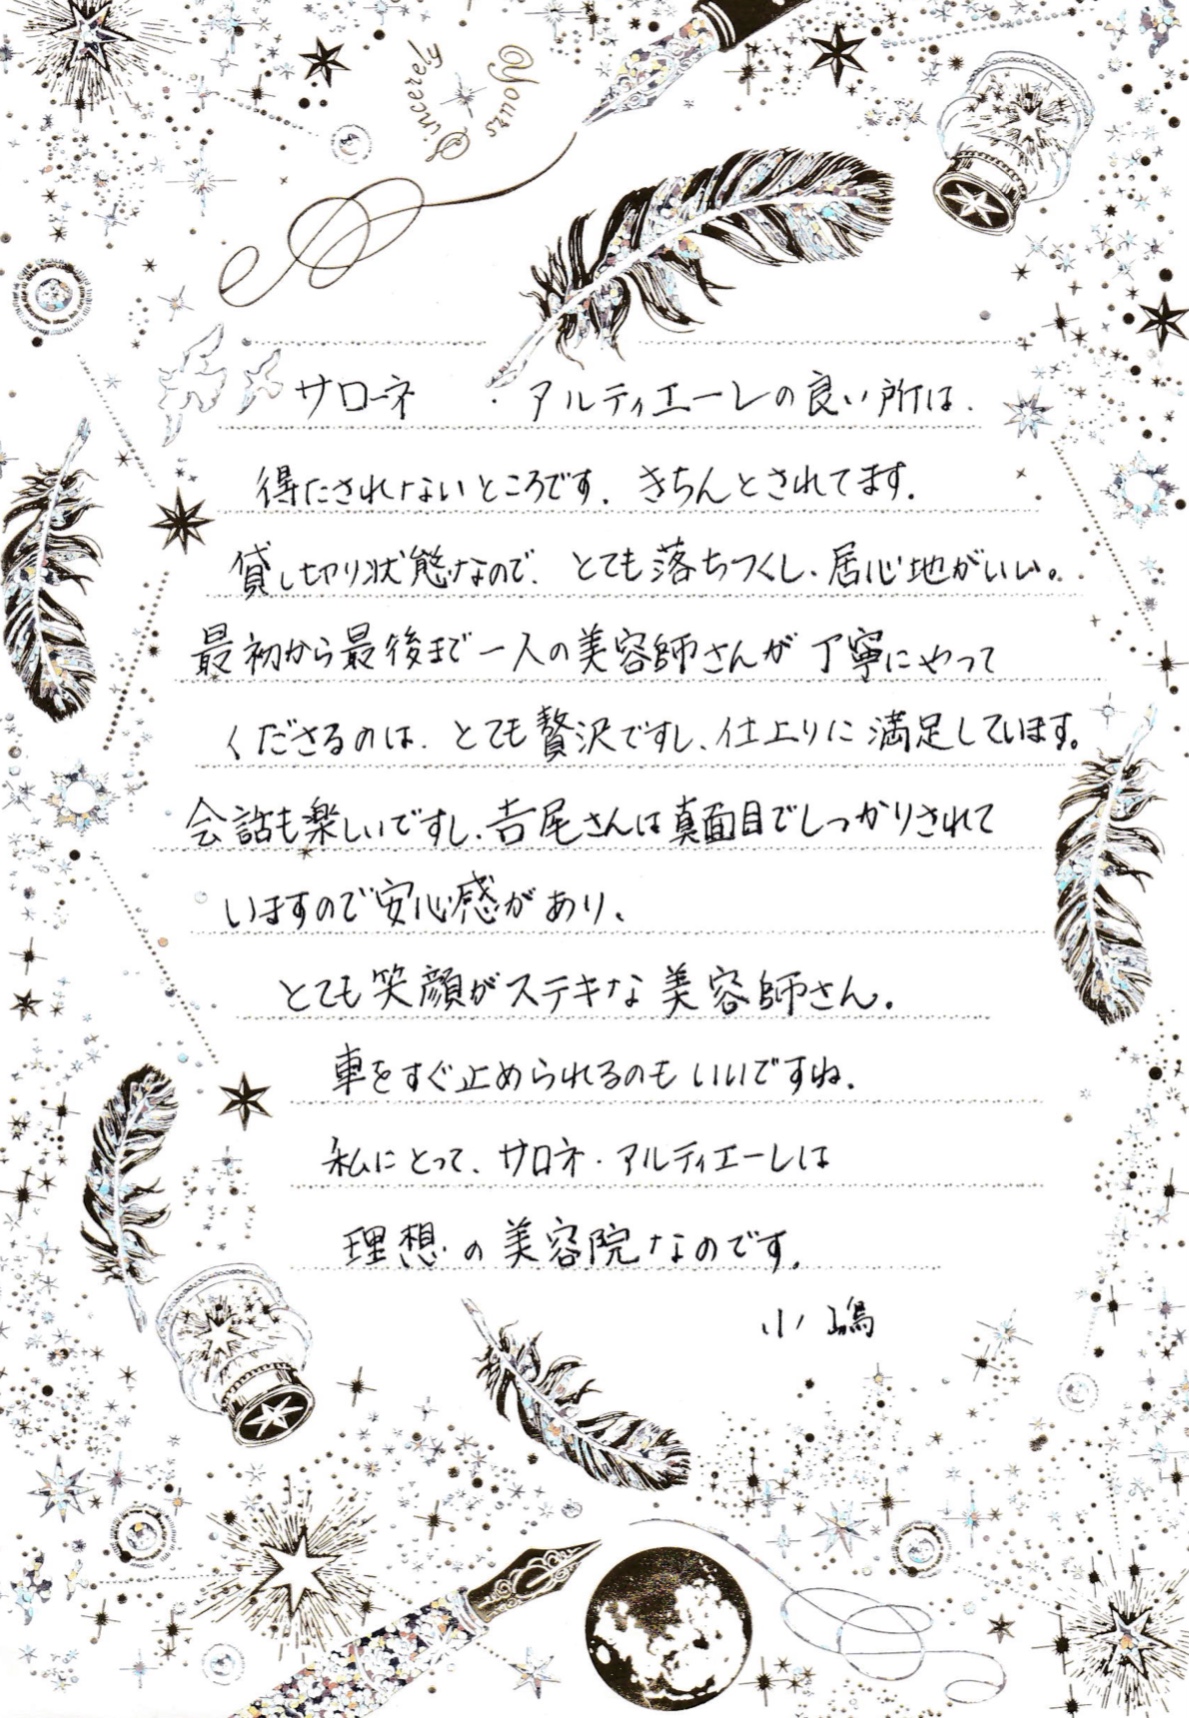 Yours
Sincerely
サローネ ・アルティエーレの良い所は、
得たされないところです。きちんとされてます。
貸し切り状態なので、とても落ちつくし、居心地がいい。
最初から最後まで一人の美容師さんが丁寧にやって
くださるのは、とても贅沢ですし、仕上りに満足しています。
会話も楽しいですし、吉尾さんは真面目でしっかりされて
いますので安心感があり、
とても笑顔がステキな美容師さん。
車をすぐ止められるのもいいですね。
私にとって、サロネ・アルティエーレは
理想の美容院なのです。
小嶋